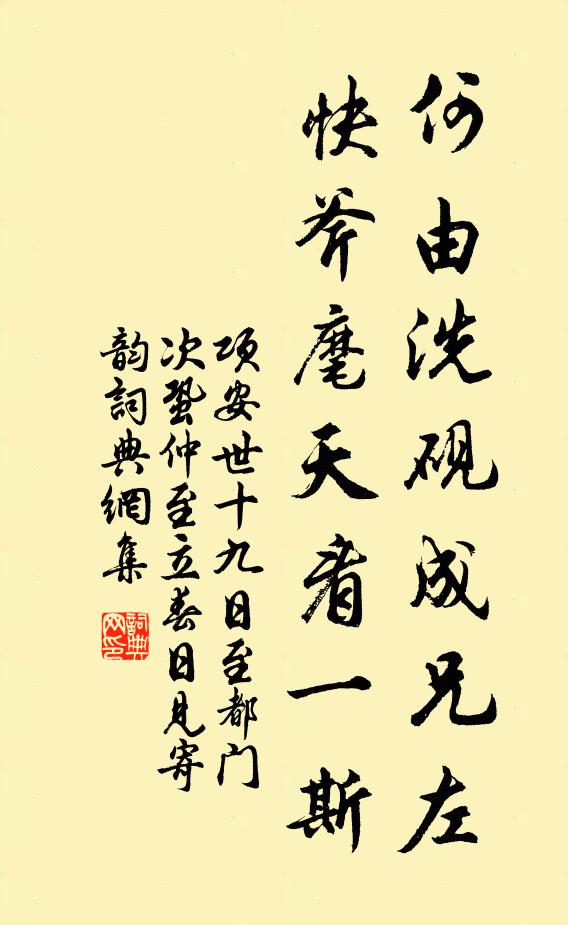 何由洗砚成兄左
快斧麾天看一斯
项安世十九日至都门
次蛩仲至立春日见寄
韵词典网集
词典网印